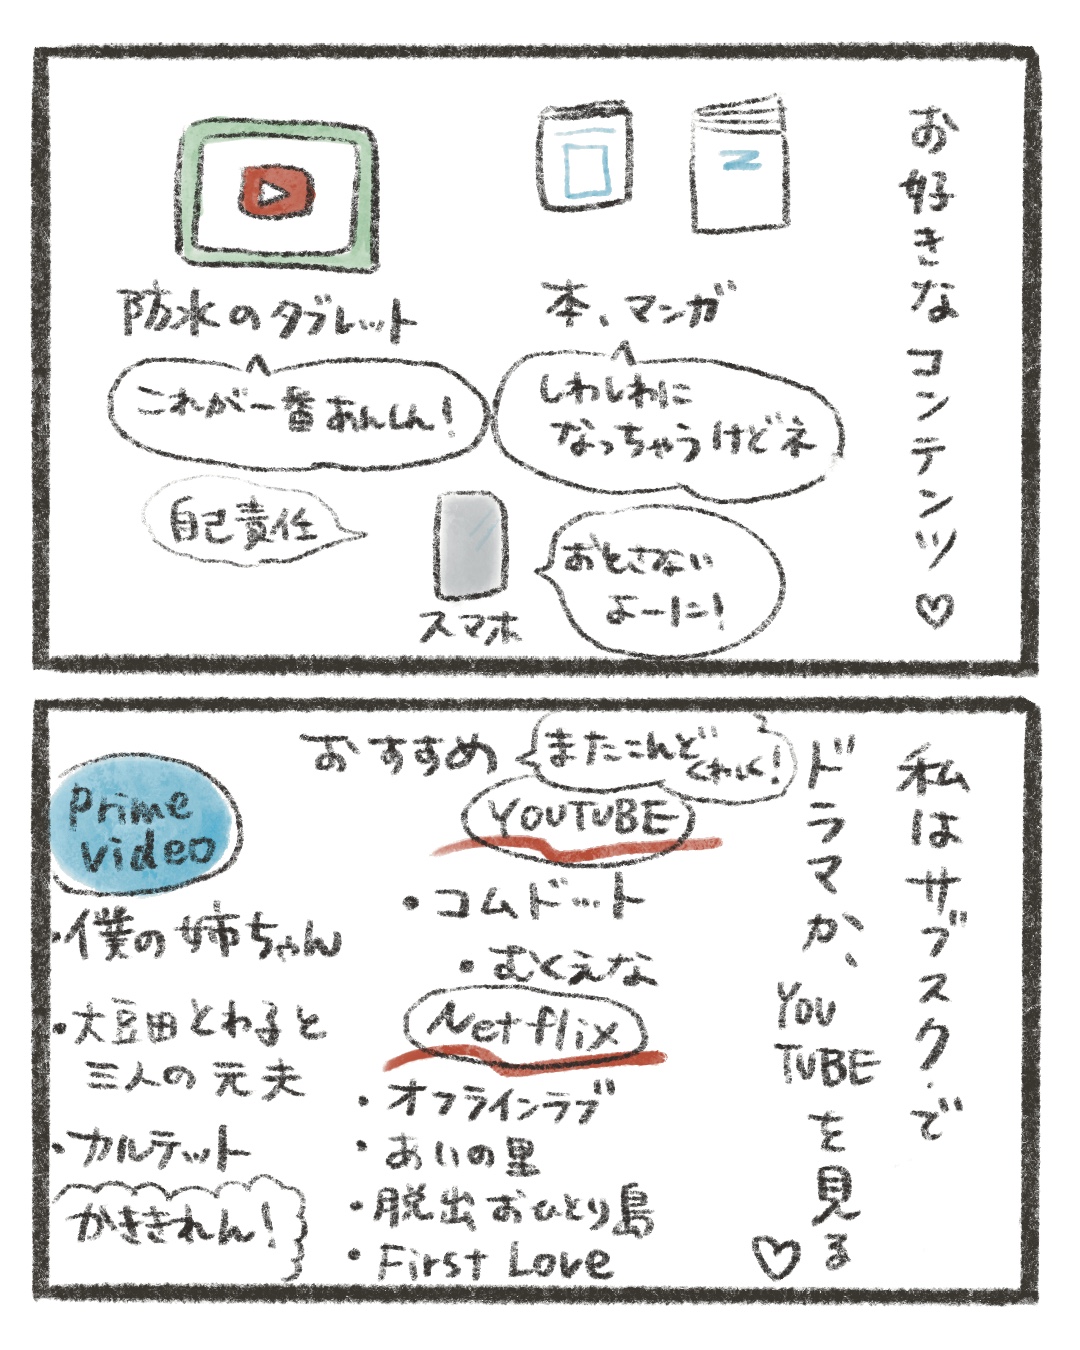 お好きなコンテンツ♡
本、マンガ
しわしわに
なっちゃうけどネ
防水のタブレット
これが一番あんしん!
スマホ
おとさない
よーに!
自己責任
私はサブスク.で
ドラマか、YOUTUBEを見る♡
おすすめ
またこんど
くわしく!
YOUTUBE
・コムドット
・むくえな
Netflix
・オフラインラブ
・あいの里
・脱出おひとり島
・First Love
Prime
video
・僕の姉ちゃん
・大豆田とわ子と
三人の元夫
・カルテット
かききれん!